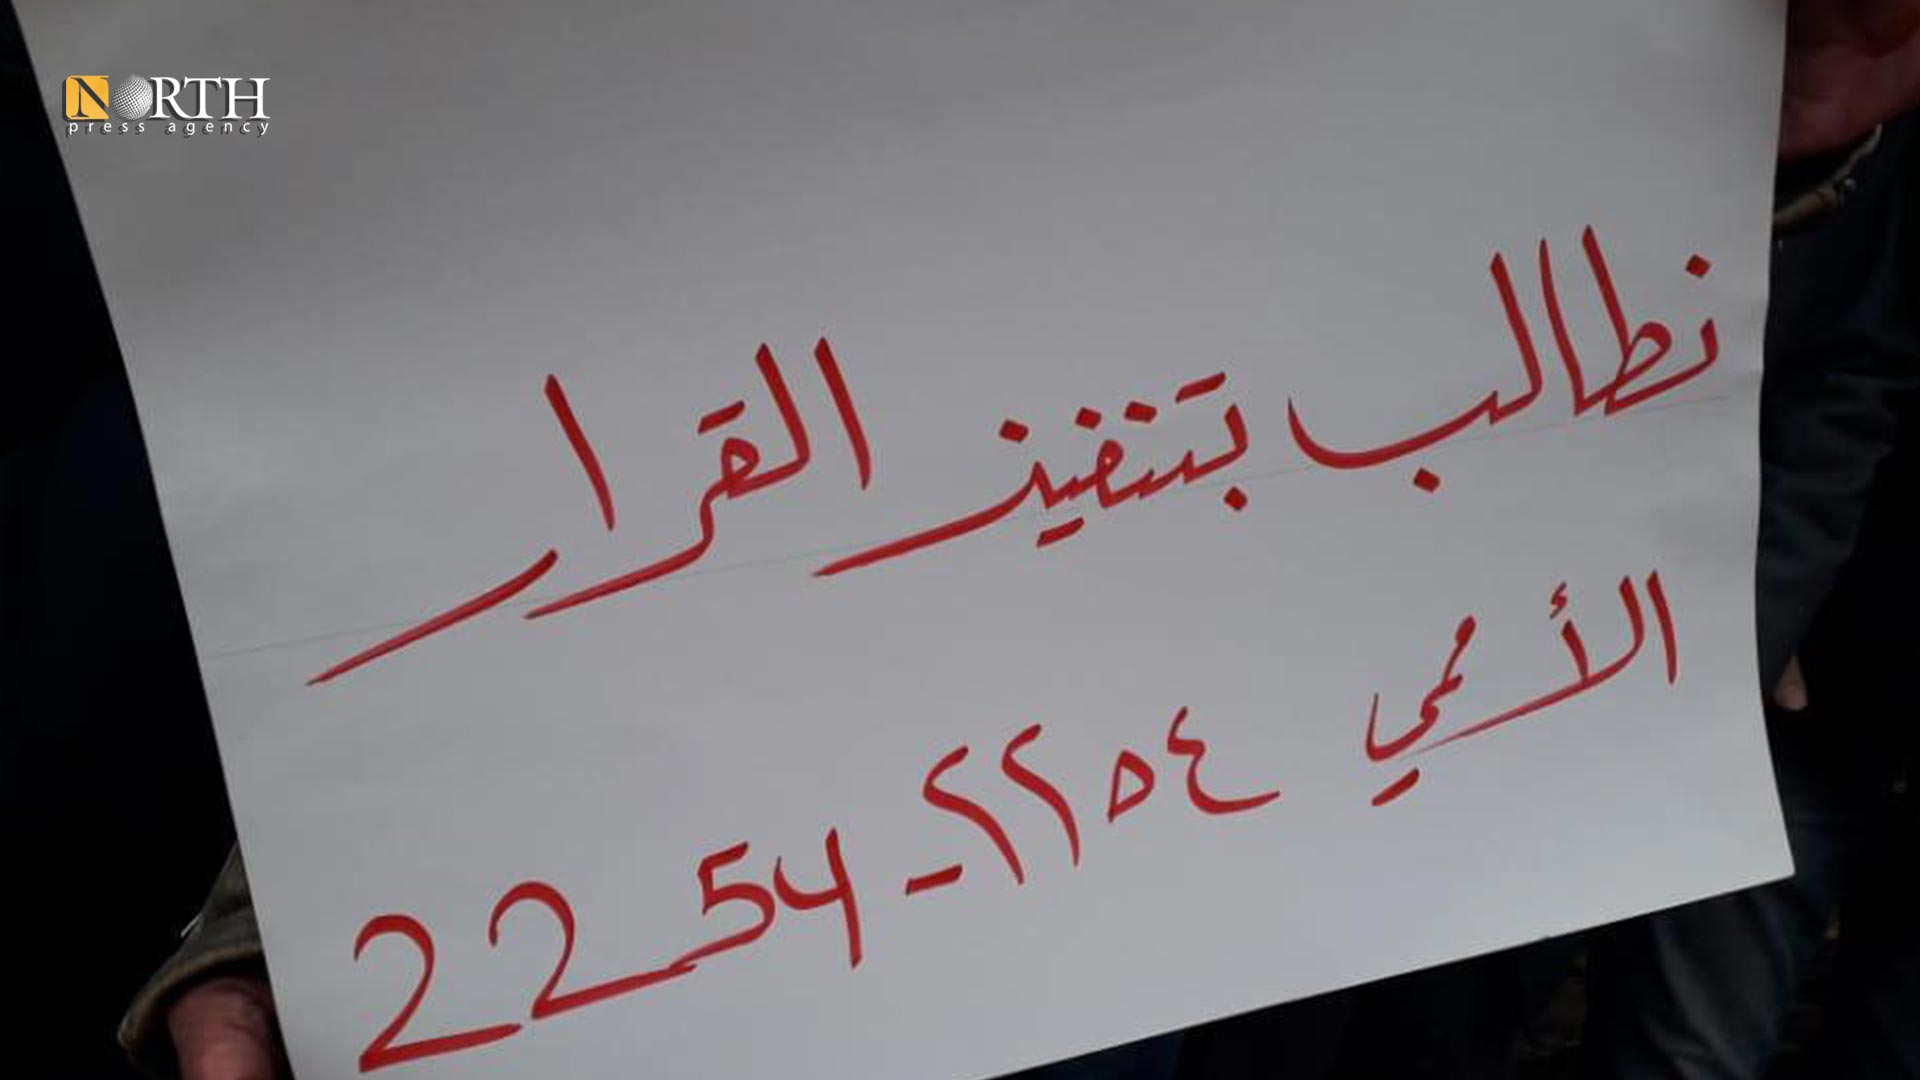 NORTH
press agency
نطالب بتنفيذ القرار
الأممي ٢٢٥٤ - 2254